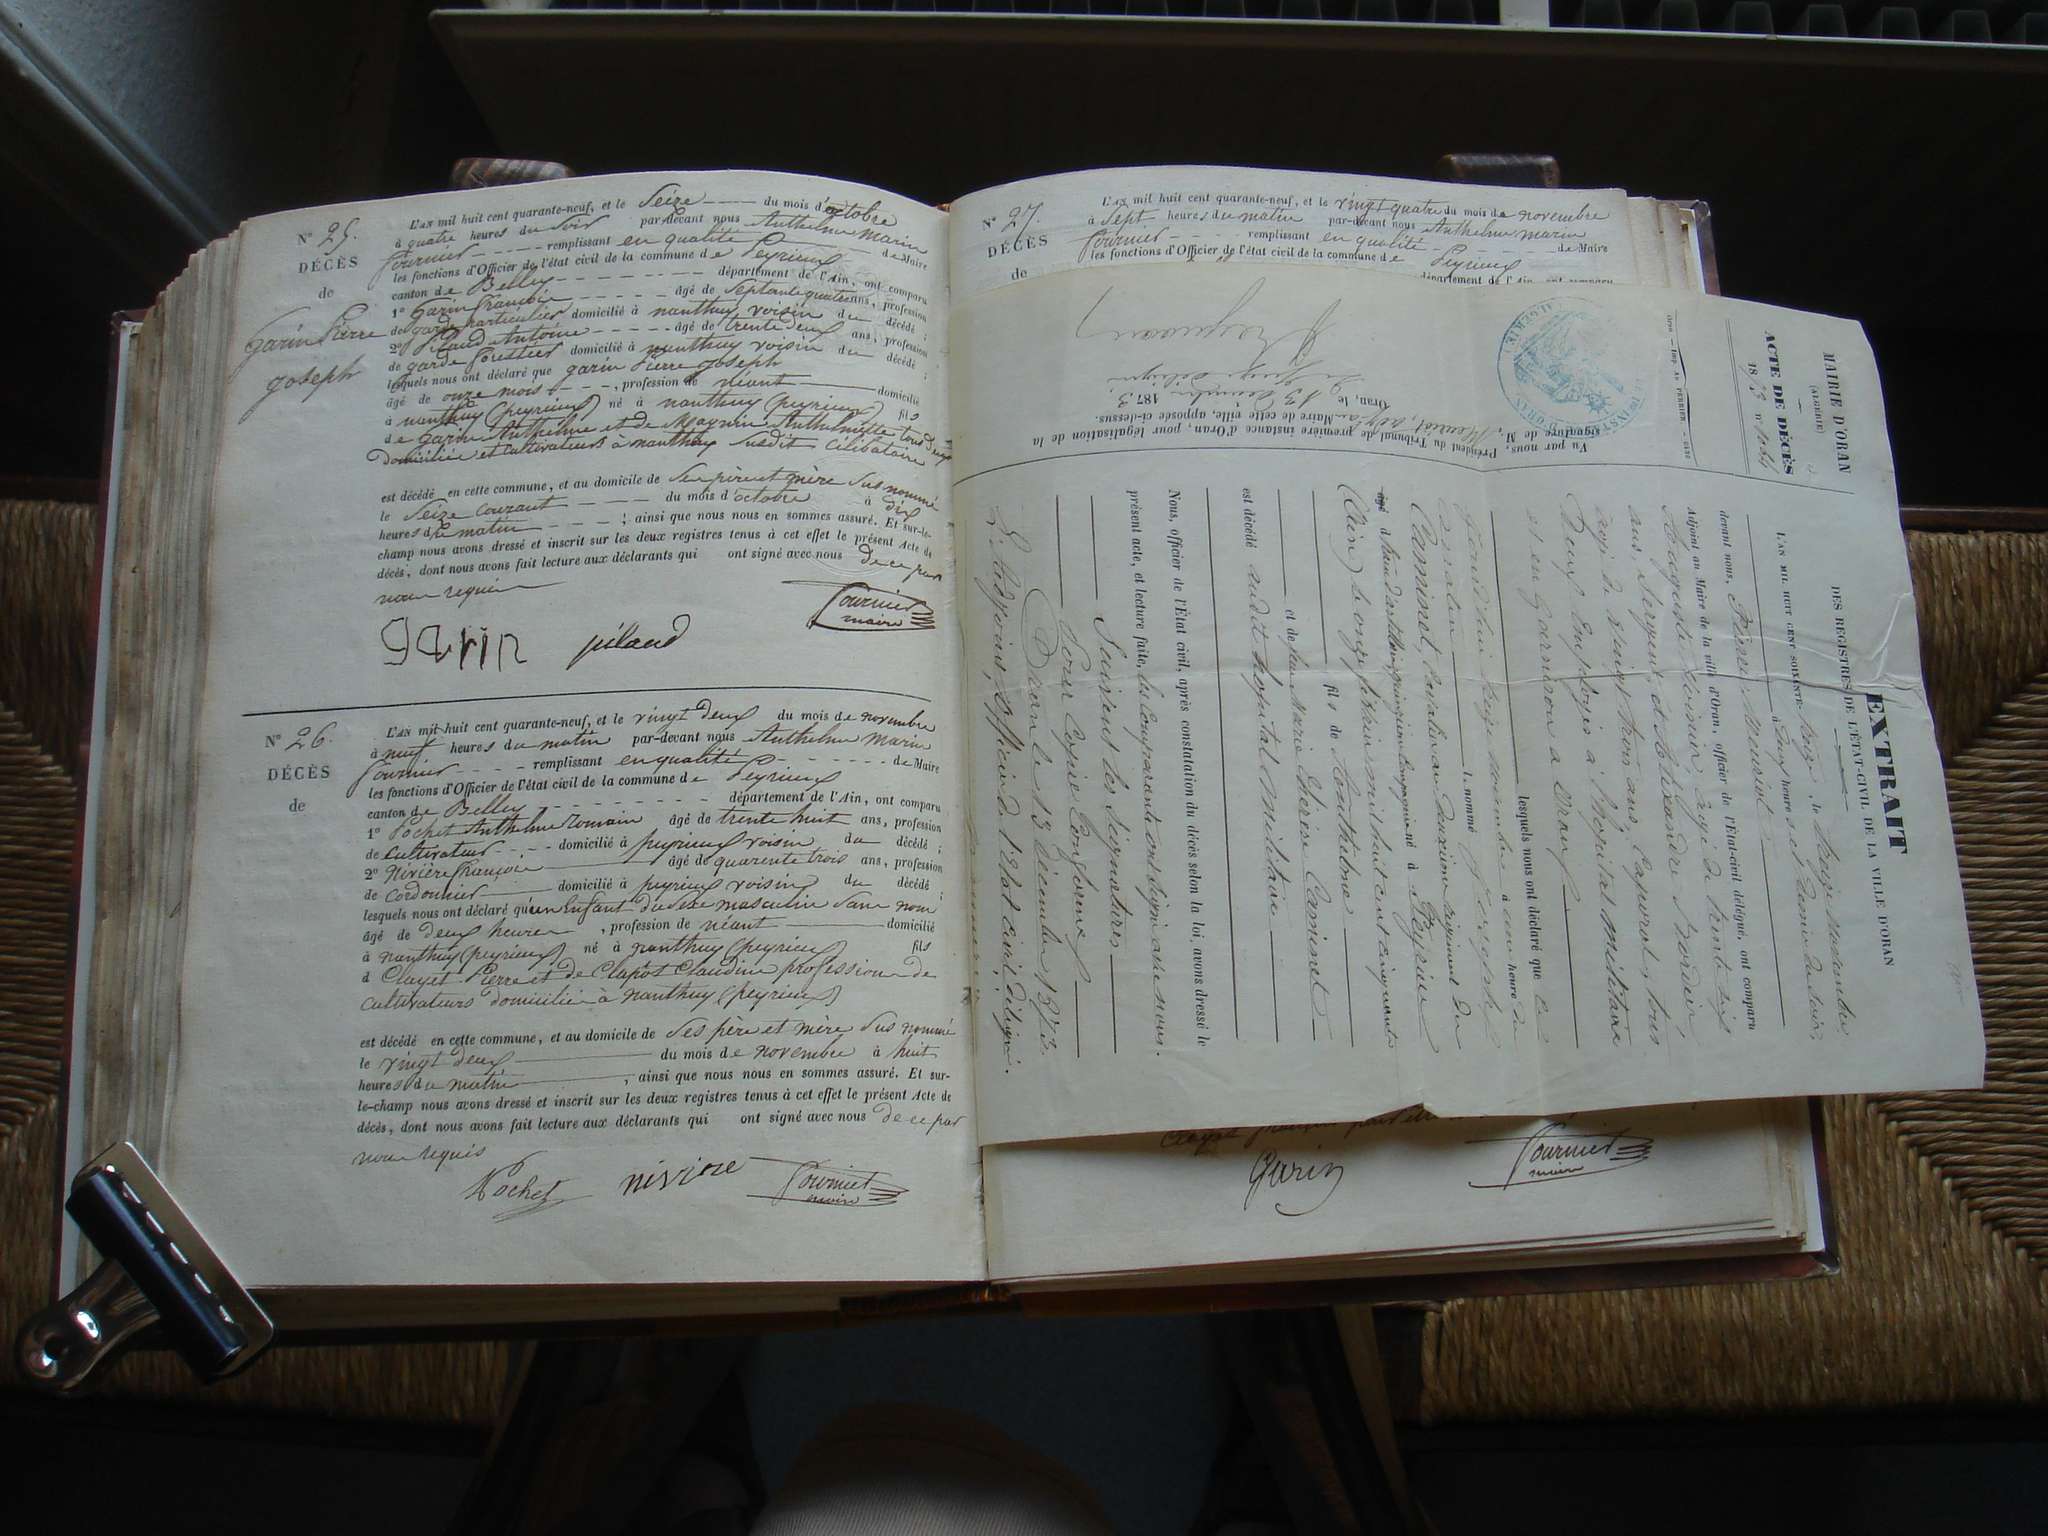 N° 25.
DÉCÈS
de
Garin Pierre
joseph
L'AN mil huit cent quarante-neuf, et le Seize du mois d'octobre
à quatre heures du Soir par-devant nous Anthelme Marin
Fournier remplissant en qualité de Maire
les fonctions d'Officier de l'état civil de la commune de Peyrieux
canton de Belley département de l'Ain, ont comparu
1° Garin François âgé de Septante quatre ans, profession
de garde particulier domicilié à nanthuy voisin du décédé ;
2° Pilaud Antoine âgé de trente deux ans, profession
de garde forestier domicilié à nanthuy voisin du décédé ;
lesquels nous ont déclaré que garin Pierre joseph
âgé de onze mois , profession de néant domicilié
à nanthuy (peyrieux) né à nanthuy (peyrieux) fils
de garin Anthelme et de Magnin Anthelmette tous deux
domicilié et cultivateurs à nanthuy Susdit Célibataire
est décédé en cette commune, et au domicile de Ses père et mère Sus nommé
le Seize Courant du mois d'octobre à dix
heures du matin ; ainsi que nous nous en sommes assuré. Et sur-le-
champ nous avons dressé et inscrit sur les deux registres tenus à cet effet le présent Acte de
décès, dont nous avons fait lecture aux déclarants qui ont signé avec nous de ce par
nous requis
garin pilaud Fournier
maire
N° 26.
DÉCÈS
de
L'AN mil huit cent quarante-neuf, et le vingt deux du mois de novembre
à neuf heures du matin par-devant nous Anthelme Marin
Fournier remplissant en qualité de Maire
les fonctions d'Officier de l'état civil de la commune de Peyrieux
canton de Belley département de l'Ain, ont comparu
1° Pochet Anthelme Romain âgé de trente huit ans, profession
de Cultivateur domicilié à peyrieux voisin du décédé ;
2° Nivière François âgé de quarente trois ans, profession
de Cordonnier domicilié à peyrieux voisin du décédé ;
lesquels nous ont déclaré qu'un Enfant du Sexe masculin Sans nom
âgé de deux heures , profession de néant domicilié
à nanthuy (peyrieux) né à nanthuy (peyrieux) fils
d Clayet Pierre et de Clapot Claudine profession de
cultivateurs domicilié à nanthuy (peyrieux)
est décédé en cette commune, et au domicile de Ses père et mère Sus nommé
le vingt deux du mois de novembre à huit
heures du matin , ainsi que nous nous en sommes assuré. Et sur-
le-champ nous avons dressé et inscrit sur les deux registres tenus à cet effet le présent Acte de
décès, dont nous avons fait lecture aux déclarants qui ont signé avec nous de ce par
nous requis
Pochet nivière Fournier
maire
N° 27.
DÉCÈS
de
L'AN mil huit cent quarante-neuf, et le vingt quatre du mois de novembre
à Sept heures du matin par-devant nous Anthelme marin
Fournier remplissant en qualité de Maire
les fonctions d'Officier de l'état civil de la commune de Peyrieux
département de l'Ain, ont comparu
Garin Fournier
maire
MAIRIE D'ORAN
(ALGÉRIE)
ACTE DE DÉCÈS
1873
EXTRAIT
DES REGISTRES DE L'ÉTAT-CIVIL DE LA VILLE D'ORAN
L'AN MIL HUIT CENT SOIXANTE- treize, le Seize novembre
à deux heures et demie du soir,
devant nous,
Adjoint au Maire de la ville d'Oran, officier de l'État-civil délégué, ont comparu
Auguste âgé de trente six
ans, Sergent, et Alexandre
âgé de vingt trois ans, Caporal, tous
deux Employés à l'hôpital militaire
et en garnison à Oran
lesquels nous ont déclaré que le
jourd'hui seize novembre à onze heures du
matin le nommé Joseph
Caminet, Cavalier au deuxième régiment du
né à Peyrieu
(Ain) le onze février mil huit cent cinquante
fils de Anthelme
et de feu Marie Thérèse Caminet
est décédé audit hôpital militaire
Nous, officier de l'État civil, après constatation du décès selon la loi, avons dressé le
présent acte, et lecture faite, les Comparants ont signé avec nous.
Suivent les Signatures
Pour Copie Conforme
Oran le 13 décembre 1873.
L'adjoint, officier de l'état civil délégué.
Vu par nous,
Président du Tribunal de première instance d'Oran, pour légalisation de la
signature de M. adj. au Maire de cette ville, apposée ci-dessus.
Oran, le 13 Décembre 1873
Le Juge délégué